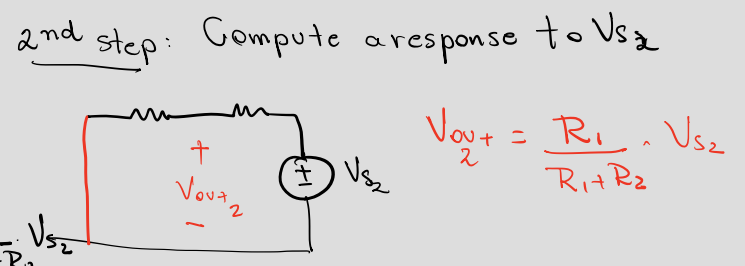 2nd step: Compute a response to Vs2
+
Vout2
-
±
Vs2
Vout2 = R1 / R1+R2 . Vs2
. Vs2